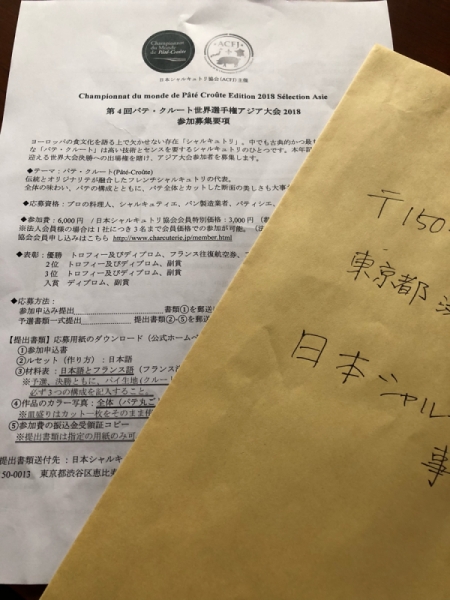 Championnat
du Monde
de Pâté-Croûte
ACFJ
日本シャルキュトリ協会(ACFJ)主催
Championnat du monde de Pâté Croûte Edition 2018 Sélection Asie
第4回パテ・クルート世界選手権アジア大会 2018
参加募集要項
ヨーロッパの食文化を語る上で欠かせない存在「シャルキュトリ」。中でも古典的かつ最
な「パテ・クルート」は高い技術とセンスを要するシャルキュトリのひとつです。本年
迎える世界大会決勝への出場権を賭け、アジア大会参加者を募集します。
◆テーマ：パテ・クルート(Pâté-Croûte)
伝統とオリジナリテが融合したフレンチシャルキュトリの代表。
全体の味わい、パテの構成とともに、パテ全体とカットした断面の美しさも大事
◆応募資格：プロの料理人、シャルキュティエ、パン製造業者、パティシエ、
◆参加費：6,000円 /日本シャルキュトリ協会会員特別価格：3,000円
※法人会員様の場合は1社につき3名まで会員価格での参加が可能。
協会会員申し込みはこちら http://www.charcuterie.jp/member.html
◆表彰：優勝 トロフィー及びディプロム、フランス往復航空券、
2位 トロフィー及びディプロム、副賞
3位 トロフィー及びディプロム、副賞
入賞 ディプロム、副賞
◆応募方法：
参加申込み提出 書類①を郵送
予選書類一式提出 提出書類②-⑤を郵送
【提出書類】応募用紙のダウンロード（公式ホーム
①参加申込書
②ルセット（作り方）：日本語
③材料表：日本語とフランス語（フランス
※予選、決勝ともに、パイ生地(クルー
必ず3つの構成を記入すること。
④作品のカラー写真：全体（パテ丸ご
※皿盛りはカット一枚をそのまま
⑤参加費の振込金受領証コピー
※提出書類は指定の用紙のみ可
提出書類送付先：日本シャルキ
150-0013 東京都渋谷区恵比
〒150
東京都
日本シャル
事